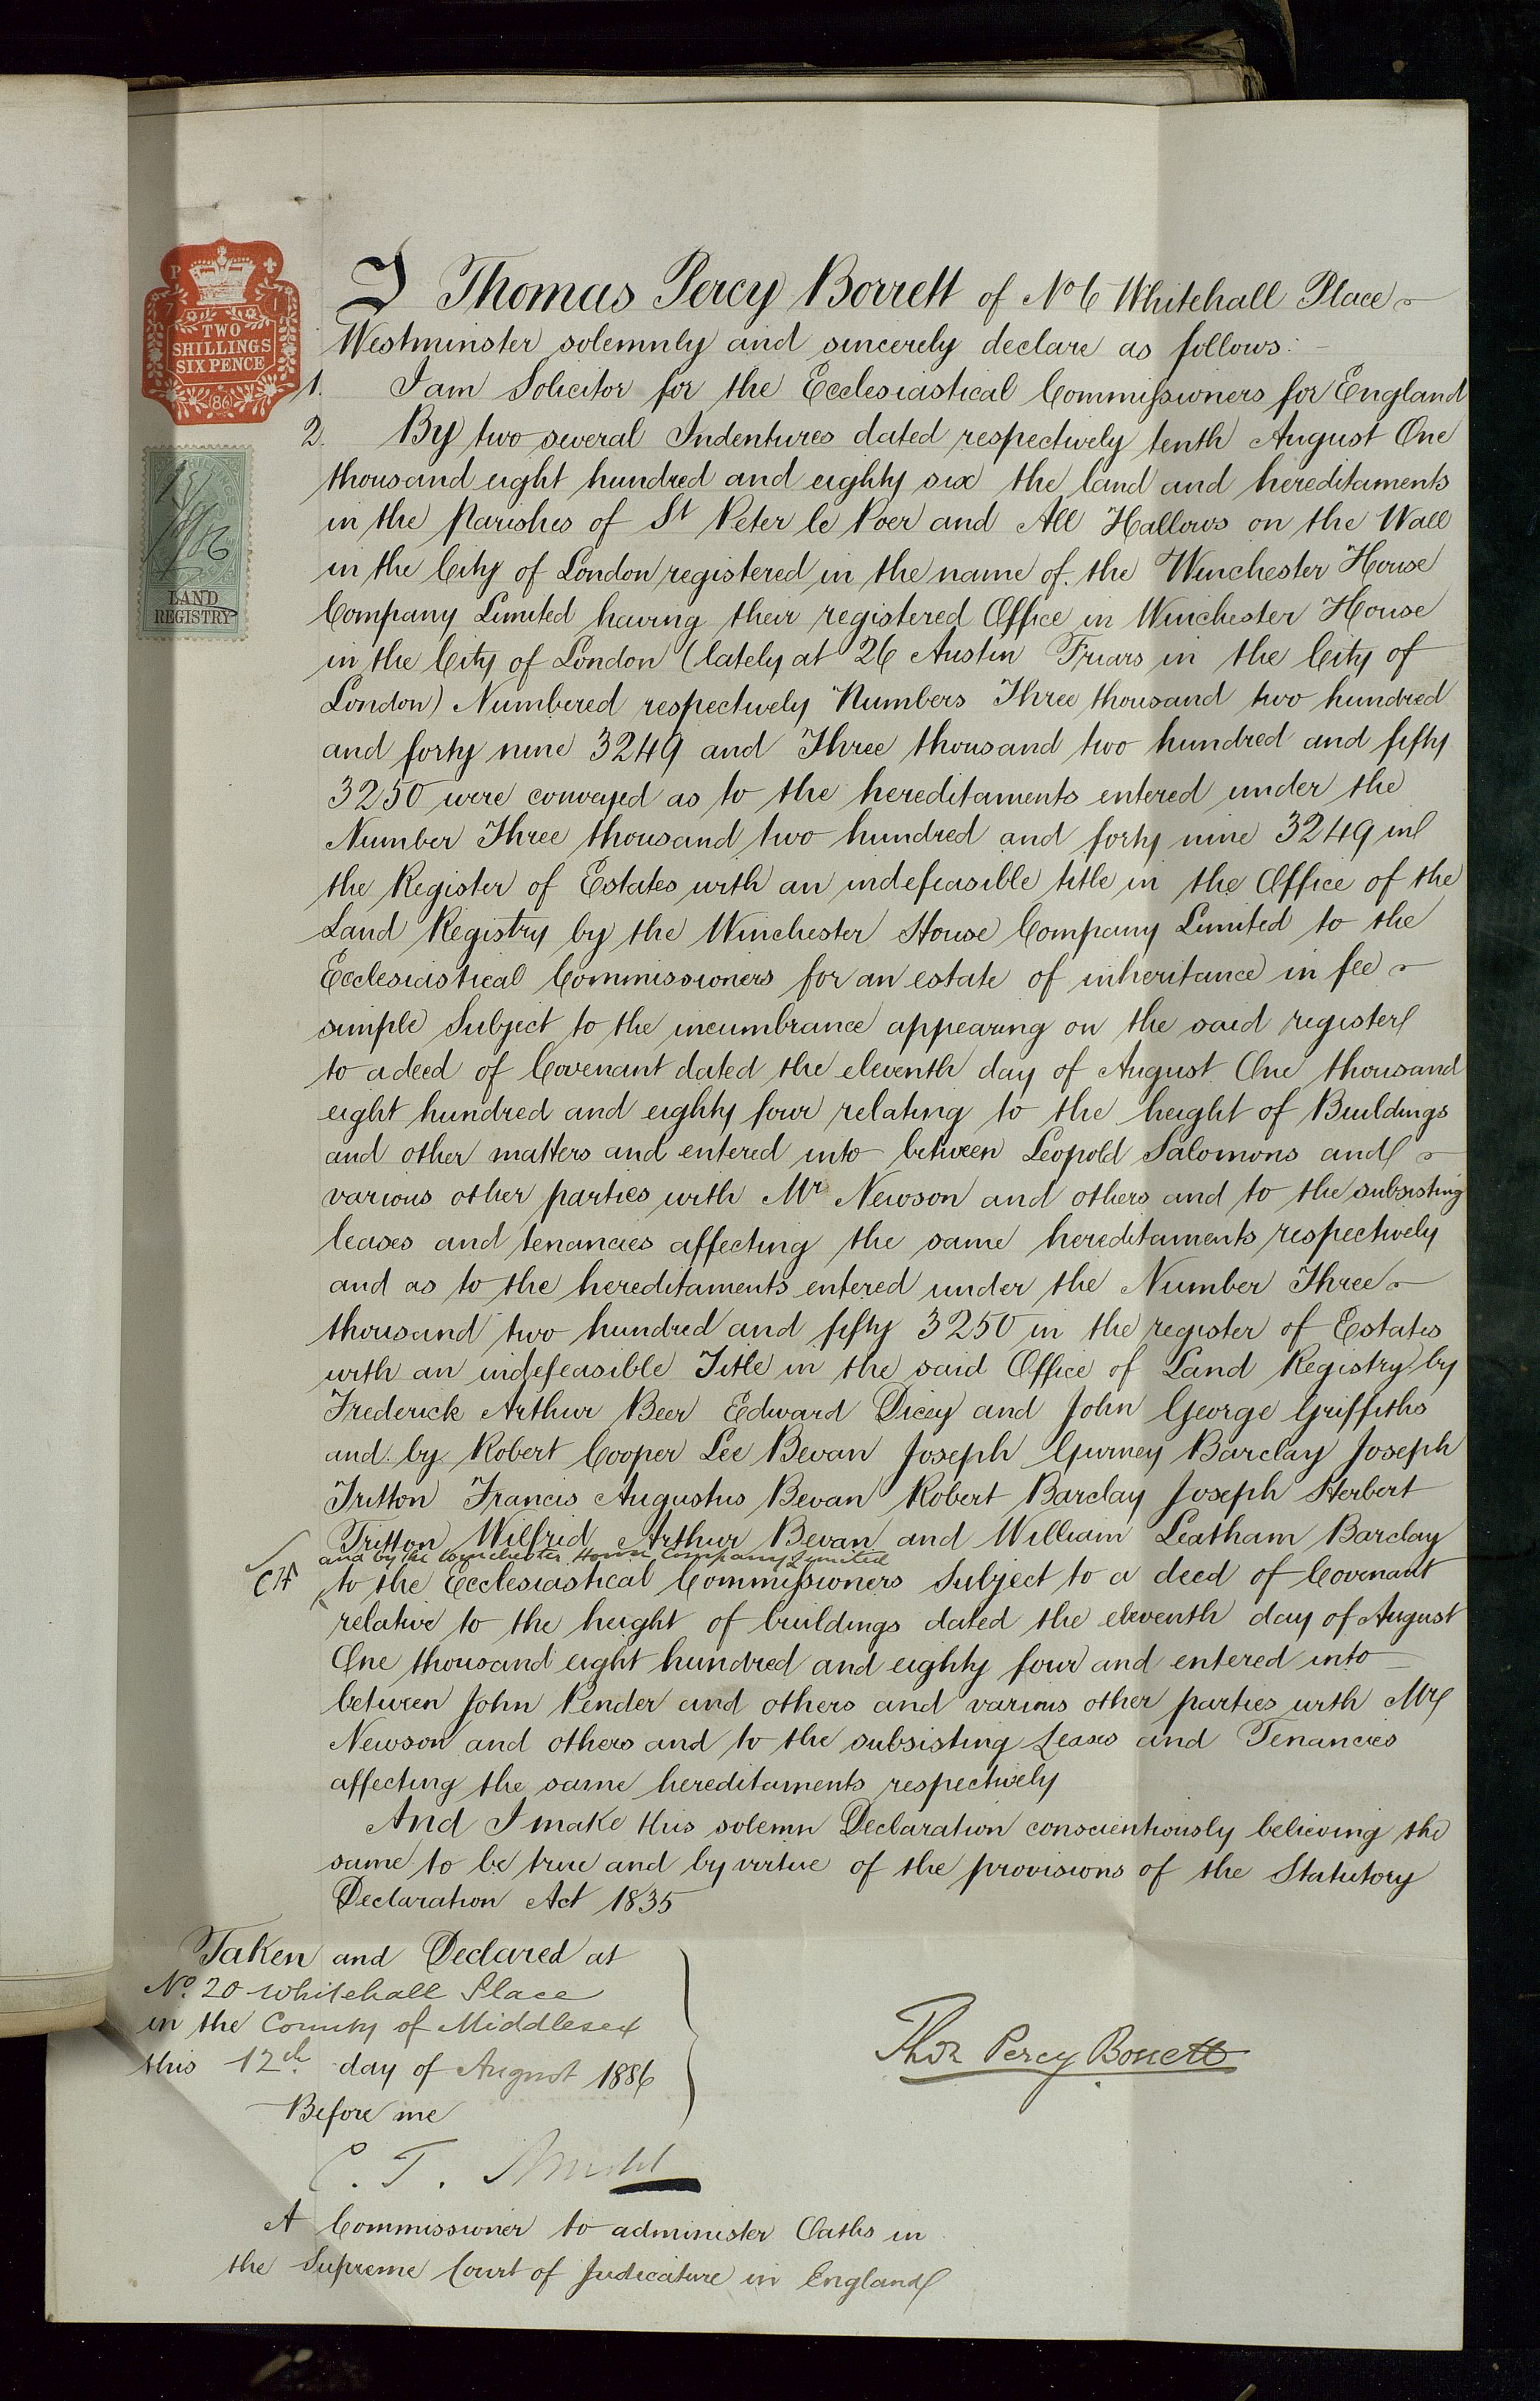 P
7 1
TWO
SHILLINGS
SIX PENCE
86
LAND
REGISTRY
I Thomas Percy Borrett of No 6 Whitehall Place
Westminster solemnly and sincerely declare as follows:
1. I am Solicitor for the Ecclesiastical Commissioners for England
2. By two several Indentures dated respectively tenth August One
thousand eight hundred and eighty six the land and hereditaments
in the Parishes of St Peter le Poer and All Hallows on the Wall
in the City of London registered in the name of the Winchester House
Company Limited having their registered Office in Winchester House
in the City of London (lately at 26 Austin Friars in the City of
London) Numbered respectively Numbers Three thousand two hundred
and forty nine 3249 and Three thousand two hundred and fifty
3250 were conveyed as to the hereditaments entered under the
Number Three thousand two hundred and forty nine 3249 in
the Register of Estates with an indefeasible title in the Office of the
Land Registry by the Winchester House Company Limited to the
Ecclesiastical Commissioners for an estate of inheritance in fee
simple Subject to the incumbrance appearing on the said register
to a deed of Covenant dated the eleventh day of August One thousand
eight hundred and eighty four relating to the height of Buildings
and other matters and entered into between Leopold Salomons and
various other parties with Mr Newson and others and to the subsisting
leases and tenancies affecting the same hereditaments respectively
and as to the hereditaments entered under the Number Three
thousand two hundred and fifty 3250 in the register of Estates
with an indefeasible Title in the said Office of Land Registry by
Frederick Arthur Beer Edward Dicey and John George Griffiths
and by Robert Cooper Lee Bevan Joseph Gurney Barclay Joseph
Tritton Francis Augustus Bevan Robert Barclay Joseph Herbert
Tritton Wilfrid Arthur Bevan and William Leatham Barclay
and by the Winchester House Company Limited
to the Ecclesiastical Commissioners Subject to a deed of Covenant
relative to the height of buildings dated the eleventh day of August
One thousand eight hundred and eighty four and entered into
between John Pender and others and various other parties with Mr
Newson and others and to the subsisting Leases and Tenancies
affecting the same hereditaments respectively
And I make this solemn Declaration conscientiously believing the
same to be true and by virtue of the provisions of the Statutory
Declaration Act 1835
Taken and Declared at
No. 20 Whitehall Place
in the County of Middlesex
this 12th day of August 1886
Before me
C. T.
Thos Percy Borrett
A Commissioner to administer Oaths in
the Supreme Court of Judicature in England